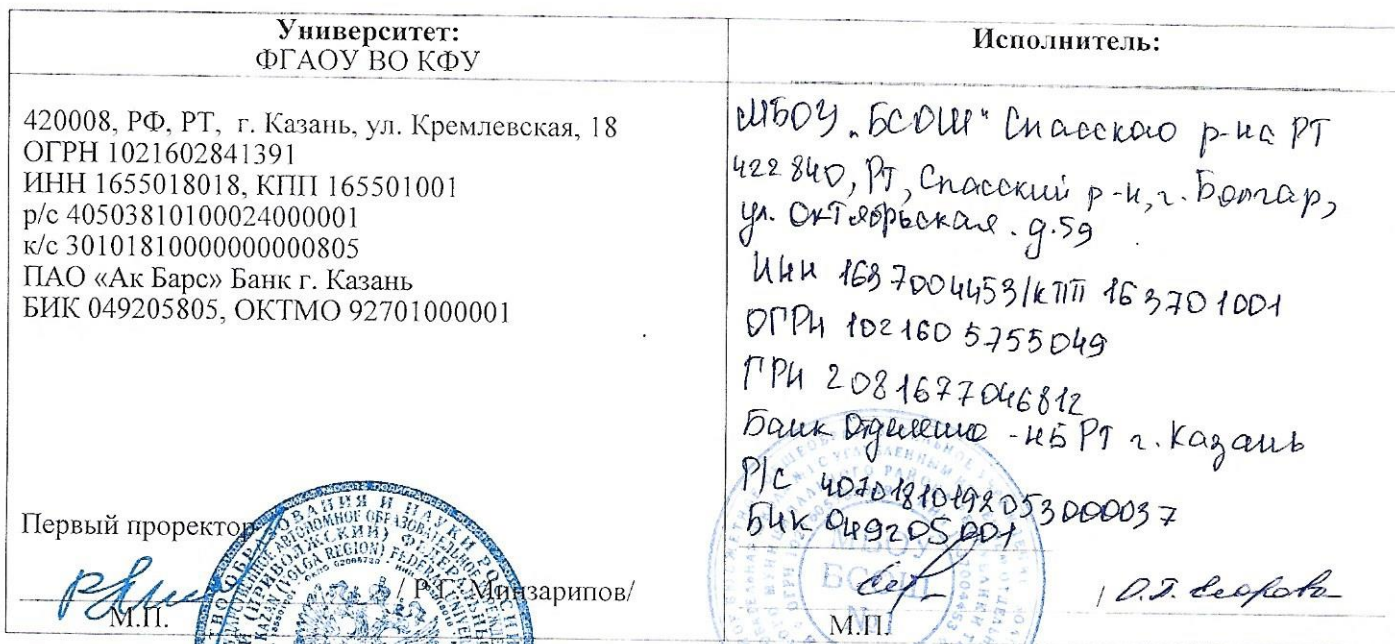 Университет:
ФГАОУ ВО КФУ
420008, РФ, РТ, г. Казань, ул. Кремлевская, 18
ОГРН 1021602841391
ИНН 1655018018, КПП 165501001
р/с 40503810100024000001
к/с 30101810000000000805
ПАО «Ак Барс» Банк г. Казань
БИК 049205805, ОКТМО 92701000001
Первый проректор
/ Р.Г. Минзарипов/
М.П.
Исполнитель:
МБОУ „БСОШ" Спасского р-на РТ
422 840, РТ, Спасский р-н, г. Болгар,
ул. Октябрьская. д.59
ИНН 1637004453/КПП 163701001
ОГРН 1021605755049
ГРН 2081677046812
Банк Отделение -НБ РТ г. Казань
Р/С 40701810192053000037
БИК 049205001
/ О.Т. Егорова
М.П.
МБОУ
БСОШ
KAZAN (VOLGA REGION) FEDERAL